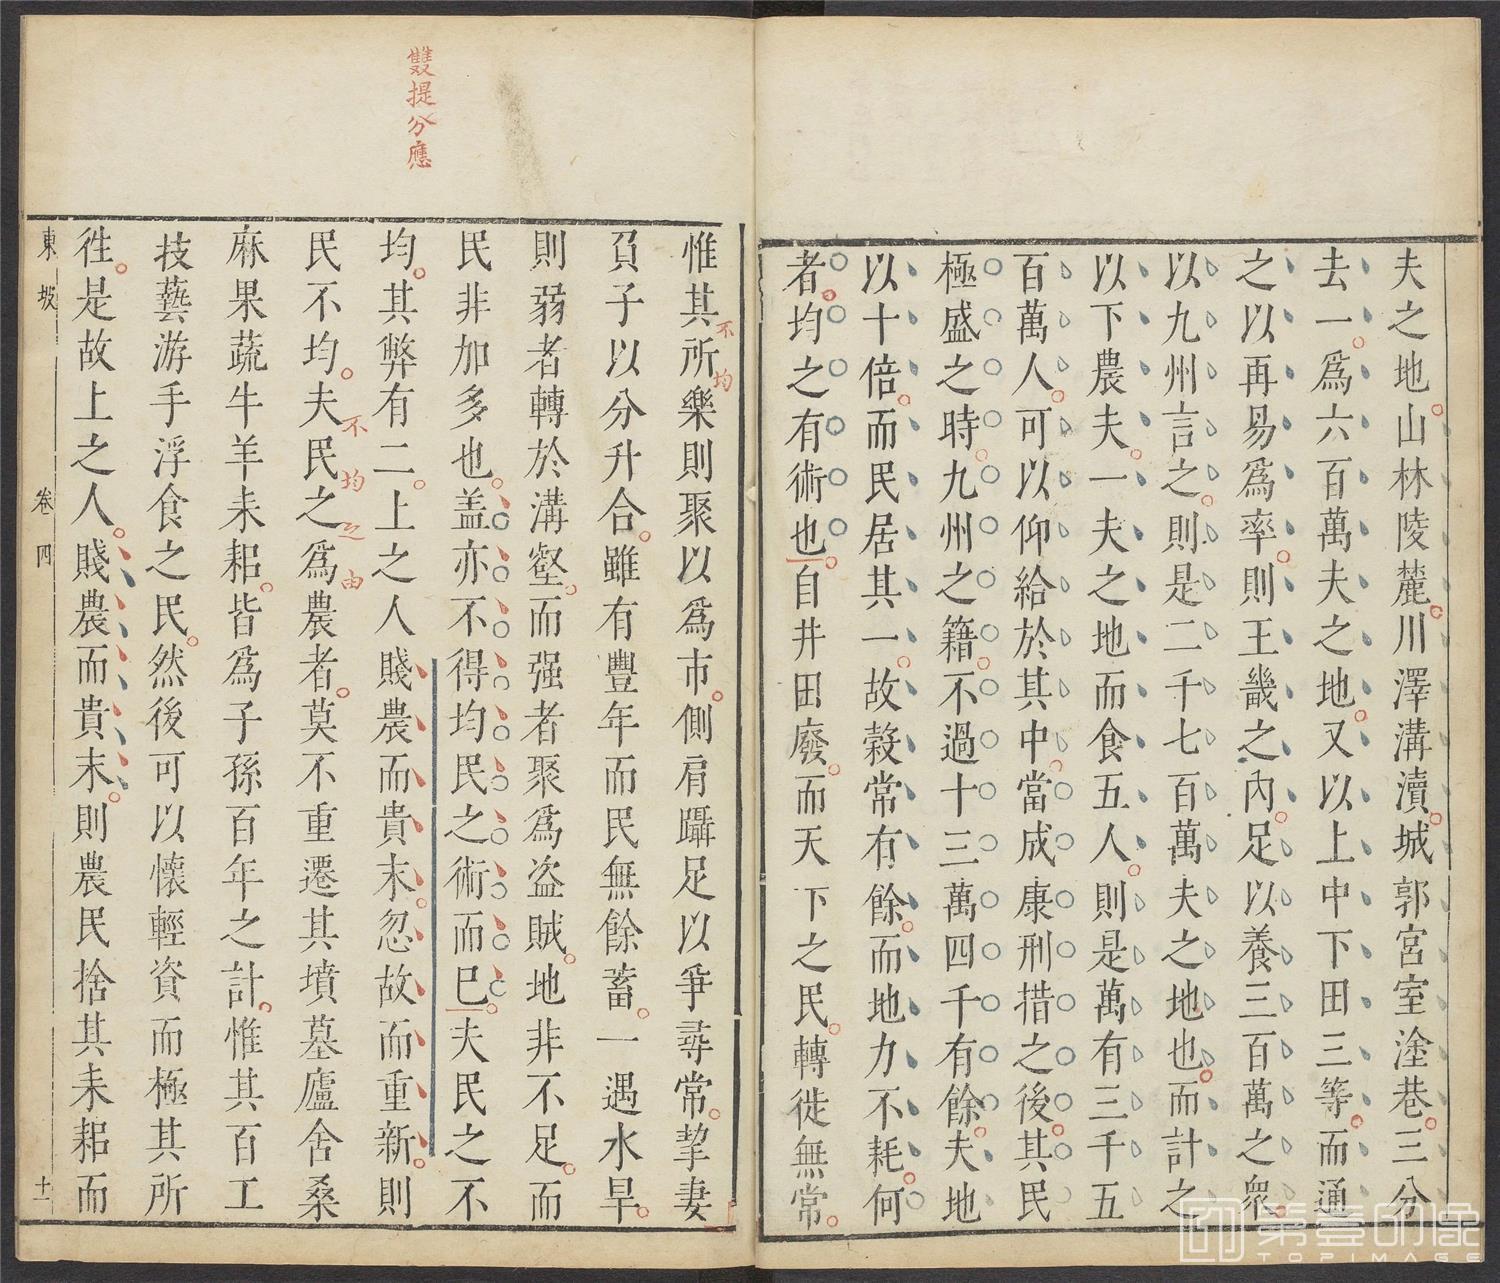 夫之地山林陵麓川澤溝瀆城郭宮室塗巷三分
去一爲六百萬夫之地又以上中下田三等而通
之以再易爲率則王畿之內足以養三百萬之衆
以九州言之則是二千七百萬夫之地也而計之
以下農夫一夫之地而食五人則是萬有三千五
百萬人可以仰給於其中當成康刑措之後其民
極盛之時九州之籍不過十三萬四千有餘夫地
以十倍而民居其一故穀常有餘而地力不耗何
者均之有術也自井田廢而天下之民轉徙無常
惟其所樂則聚以爲市側肩躡足以爭尋常挈妻
負子以分升合雖有豐年而民無餘蓄一遇水旱
則弱者轉於溝壑而强者聚爲盜賊地非不足而
民非加多也盖亦不得均民之術而已夫民之不
均其弊有二上之人賤農而貴末忽故而重新則
民不均夫民之爲農者莫不重遷其墳墓廬舍桑
麻果蔬牛羊耒耜皆爲子孫百年之計惟其百工
技藝游手浮食之民然後可以懷輕資而極其所
徃是故上之人賤農而貴末則農民捨其耒耜而
雙提分應
不均
不均之由
東坡 卷四 十一
第壹印象
TOPIMAGE